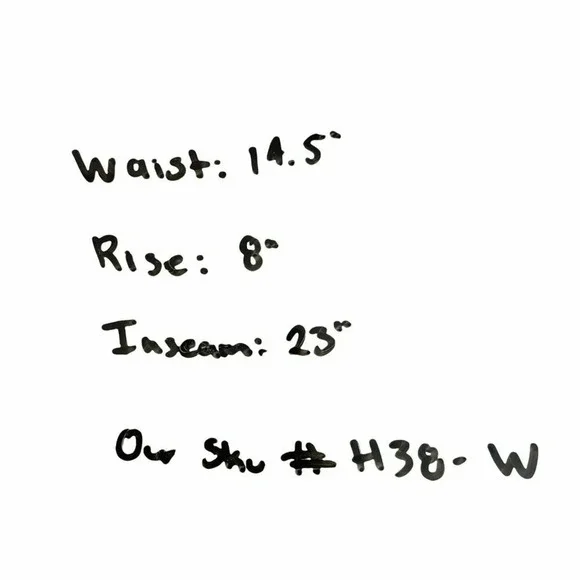 Waist: 14.5"
Rise: 8"
Inseam: 23"
Our Sku # H38-W